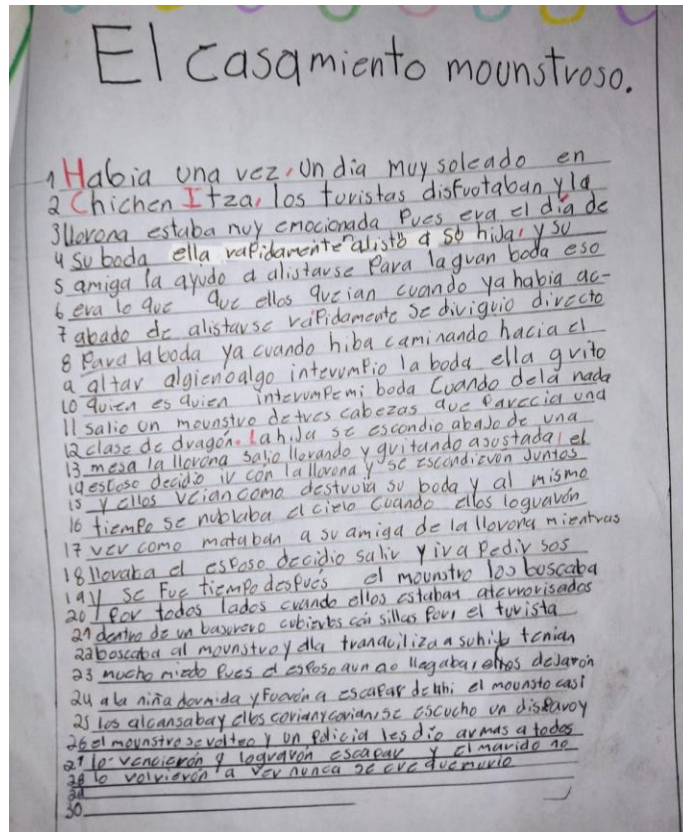 El casamiento mounstroso.
1 Habia una vez, un dia muy soleado en
2 Chichen Itza, los turistas disfuotaban y la
3 llorona estaba muy emocionada pues era el día de
4 su boda ella rapidamente alistó a so hija, y su
5 amiga la ayudo a alistarse para la gran boda eso
6 era lo que que ellos queian cuando ya habia ac-
7 abado de alistarse rapidamente se diviguio directo
8 para la boda ya cuando hiba caminando hacia el
9 altar algienoalgo interumpio la boda ella grito
10 quien es quien interumpe mi boda cuando dela nada
11 salio un mounstro de tres cabezas que parecia una
12 clase de dragon. La hija se escondio abajo de una
13 mesa la llorona salio llorando y guitando asustada, el
14 esposo decidio ir con la llorona y se escondieron juntos
15 y ellos veian como destruia su boda y al mismo
16 tiempo se nublaba el cielo cuando ellos lograrón
17 ver como mataban a su amiga de la llorona mientras
18 lloraba el esposo decidio salir y iva pedir sos
19 y se fue tiempo después el mounstro los buscaba
20 por todos lados cuando ellos estaban aterrorisados
21 dentro de un basurero cubiertos con sillas por, el turista
22 boscaba al mounstro y ella tranquiliza a su hija tenian
23 mucho miedo pues el esposo aun no llegaba, ellos dejarón
24 a la niña dormida y fuerón a escapar de ahi el mounsto casi
25 los alcansaba y ellos corian y corian, se escucho un disparo y
26 el mounstro se volteo y un policia les dio armas a todos
27 lo vencierón y lograrón escapar y el marido no
28 lo volvierón a ver nunca se cre que murio
29
30